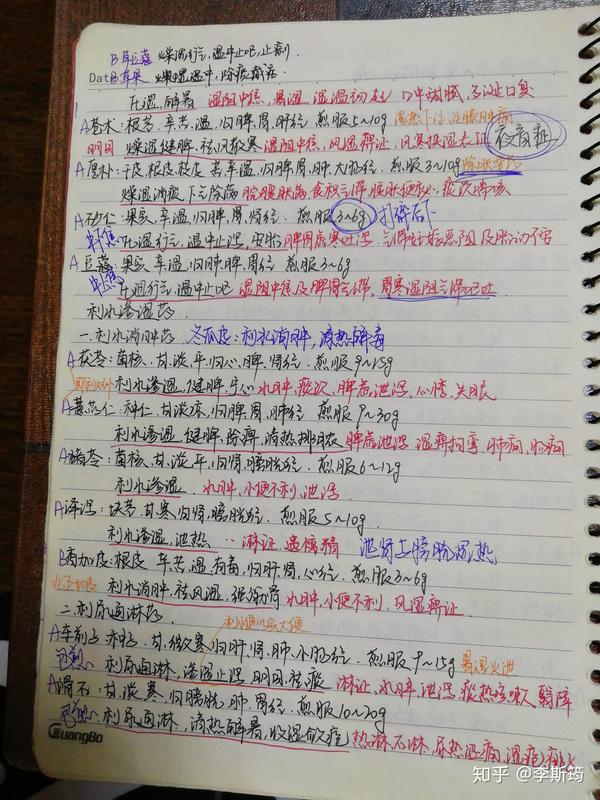 B草豆蔻 燥湿行气,温中止呕,止泻.
Date B草果 燥湿温中,除痰截疟.
化湿,解暑 湿阻中焦,暑湿,湿温初起 口中甜腻,多涎口臭
A苍术:根茎,辛苦,温,归脾,胃,肝经 煎服5~10g 湿热下注,足膝肿痛
明目 燥湿健脾,祛风散寒 湿阻中焦,风湿痹证,风寒挟湿表证 夜盲症
A厚朴:干皮,根皮,枝皮 苦辛温,归脾,胃,肺,大肠经,煎服3~10g
燥湿消痰,下气除满 脘腹胀满 食积气滞 腹胀便秘,痰饮喘咳
A砂仁:果实,辛温,归脾,胃,肾经.煎服3~6g 打碎后下
中焦 化湿行气,温中止泻,安胎 脾胃虚寒吐泻 气滞妊娠恶阻及胎动不安
A豆蔻 果实 辛温,归肺脾,胃经 煎服3~6g
化湿行气,温中止呕 湿阻中焦及脾胃气滞,胃寒湿阻气滞呕吐
利水渗湿药
一.利水消肿药 冬瓜皮:利水消肿,清热解毒
A茯苓:菌核,甘,淡,平,归心,脾,肾经 煎服9~15g
利水渗湿,健脾,宁心 水肿,痰饮,脾虚泄泻,心悸,失眠
A薏苡仁:种仁,甘淡凉,归脾,胃,肺经 煎服9~30g
利水渗湿,健脾,除痹,清热排脓 脾虚泄泻 湿痹拘挛,肺痈,肠痈
A猪苓:菌核,甘,淡,平,归肾,膀胱经.煎服6~12g
利水渗湿 水肿,小便不利,泄泻
A泽泻:块茎,甘寒,归肾,膀胱经,煎服5~10g
利水渗湿,泄热 淋证,遗精 泄肾与膀胱湿热
B香加皮:根皮 辛苦,温,有毒,归肝,肾,心经.煎服3~6g
北五加皮 利水消肿,祛风湿,强筋骨 水肿,小便不利,风湿痹证
二.利尿通淋药 利小便以实大便
A车前子 种子,甘,微寒,归肝,肾,肺,小肠经.煎服9~15g 暑湿水泄
包煎 利尿通淋,渗湿止泻,明目,祛痰 淋证,水肿,泄泻,痰热咳嗽 翳障
A滑石:甘,淡,寒,归膀胱,肺,胃经 煎服10~20g
包煎 利尿通淋,清热解暑,收湿敛疮 热淋,石淋,尿热涩痛,湿疮,痱子
GuangBo
知乎 @李斯筠